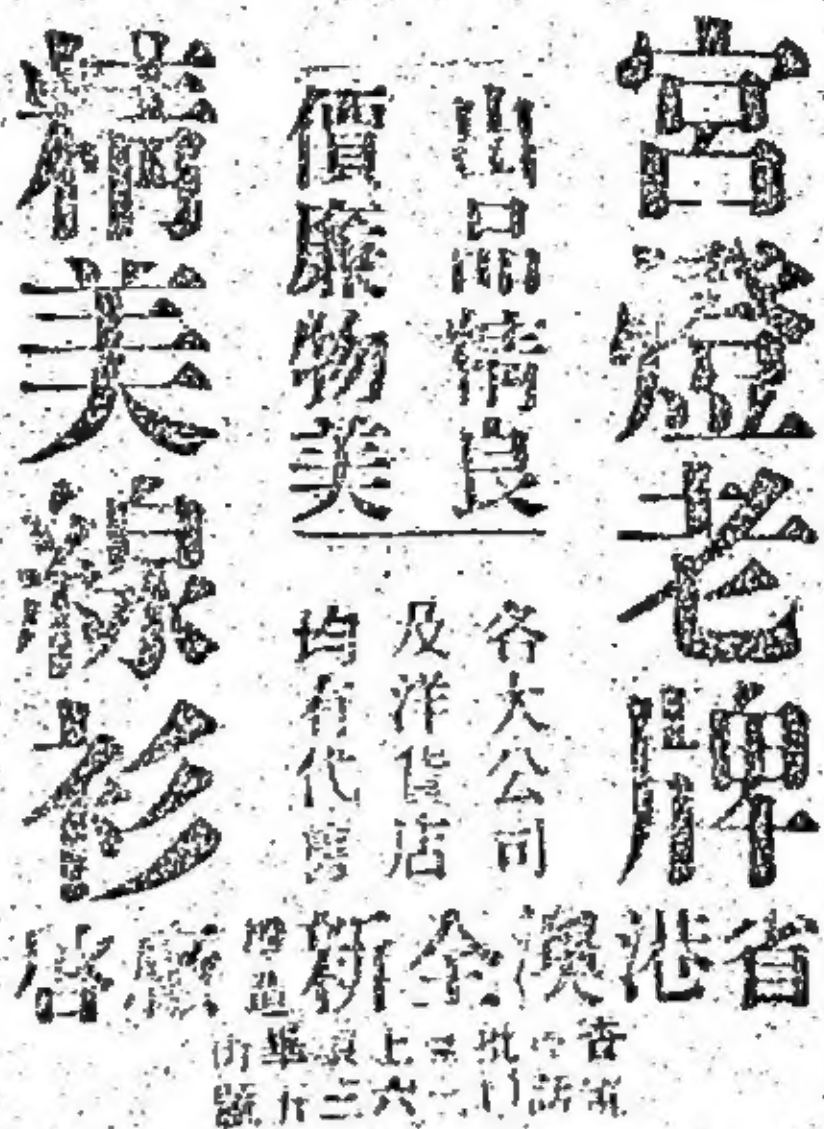 宮燈老牌
出品精良
價廉物美
各大公司
及洋貨店
均有代賣
精美線衫
省港澳全新織造廠啓